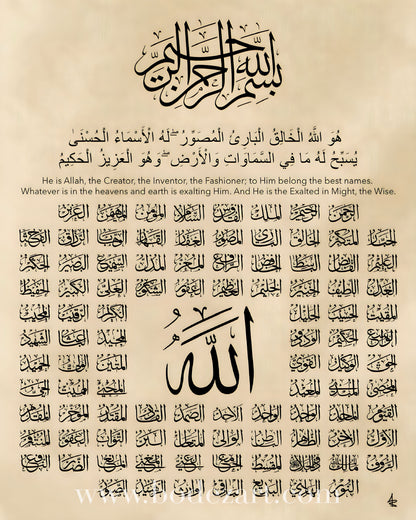 بسم الله الرحمن الرحيم
هُوَ اللَّهُ الْخَالِقُ الْبَارِئُ الْمُصَوِّرُ ۖ لَهُ الْأَسْمَاءُ الْحُسْنَىٰ
يُسَبِّحُ لَهُ مَا فِي السَّمَاوَاتِ وَالْأَرْضِ ۖ وَهُوَ الْعَزِيزُ الْحَكِيمُ
He is Allah, the Creator, the Inventor, the Fashioner; to Him belong the best names.
Whatever is in the heavens and earth is exalting Him. And He is the Exalted in Might, the Wise.
الرحمن الرحيم الملك القدوس السلام المؤمن المهيمن العزيز
الجبار المتكبر الخالق البارئ المصور الغفار القهار الوهاب الرزاق الفتاح
العليم القابض الباسط الخافض الرافع المعز المذل السميع البصير الحكم
العدل اللطيف الخبير الحليم العظيم الغفور الشكور العلي الكبير الحفيظ
المقيت الحسيب الجليل الكريم الرقيب المجيب
الواسع الحكيم الودود المجيد الباعث الشهيد
الله
الحق الوكيل القوي المتين الولي الحميد
المحصي المبدئ المعيد المحيي المميت الحي
القيوم الواجد الماجد الواحد الاحد الصمد القادر المقتدر المقدم المؤخر
الأول الآخر الظاهر الباطن الوالي المتعالي البر التواب المنتقم العفو
الرؤوف مالك الملك المقسط الجامع الغني المغني المانع الضار النافع
النور الهادي البديع الباقي الوارث الرشيد الصبور
www.bodezart.com